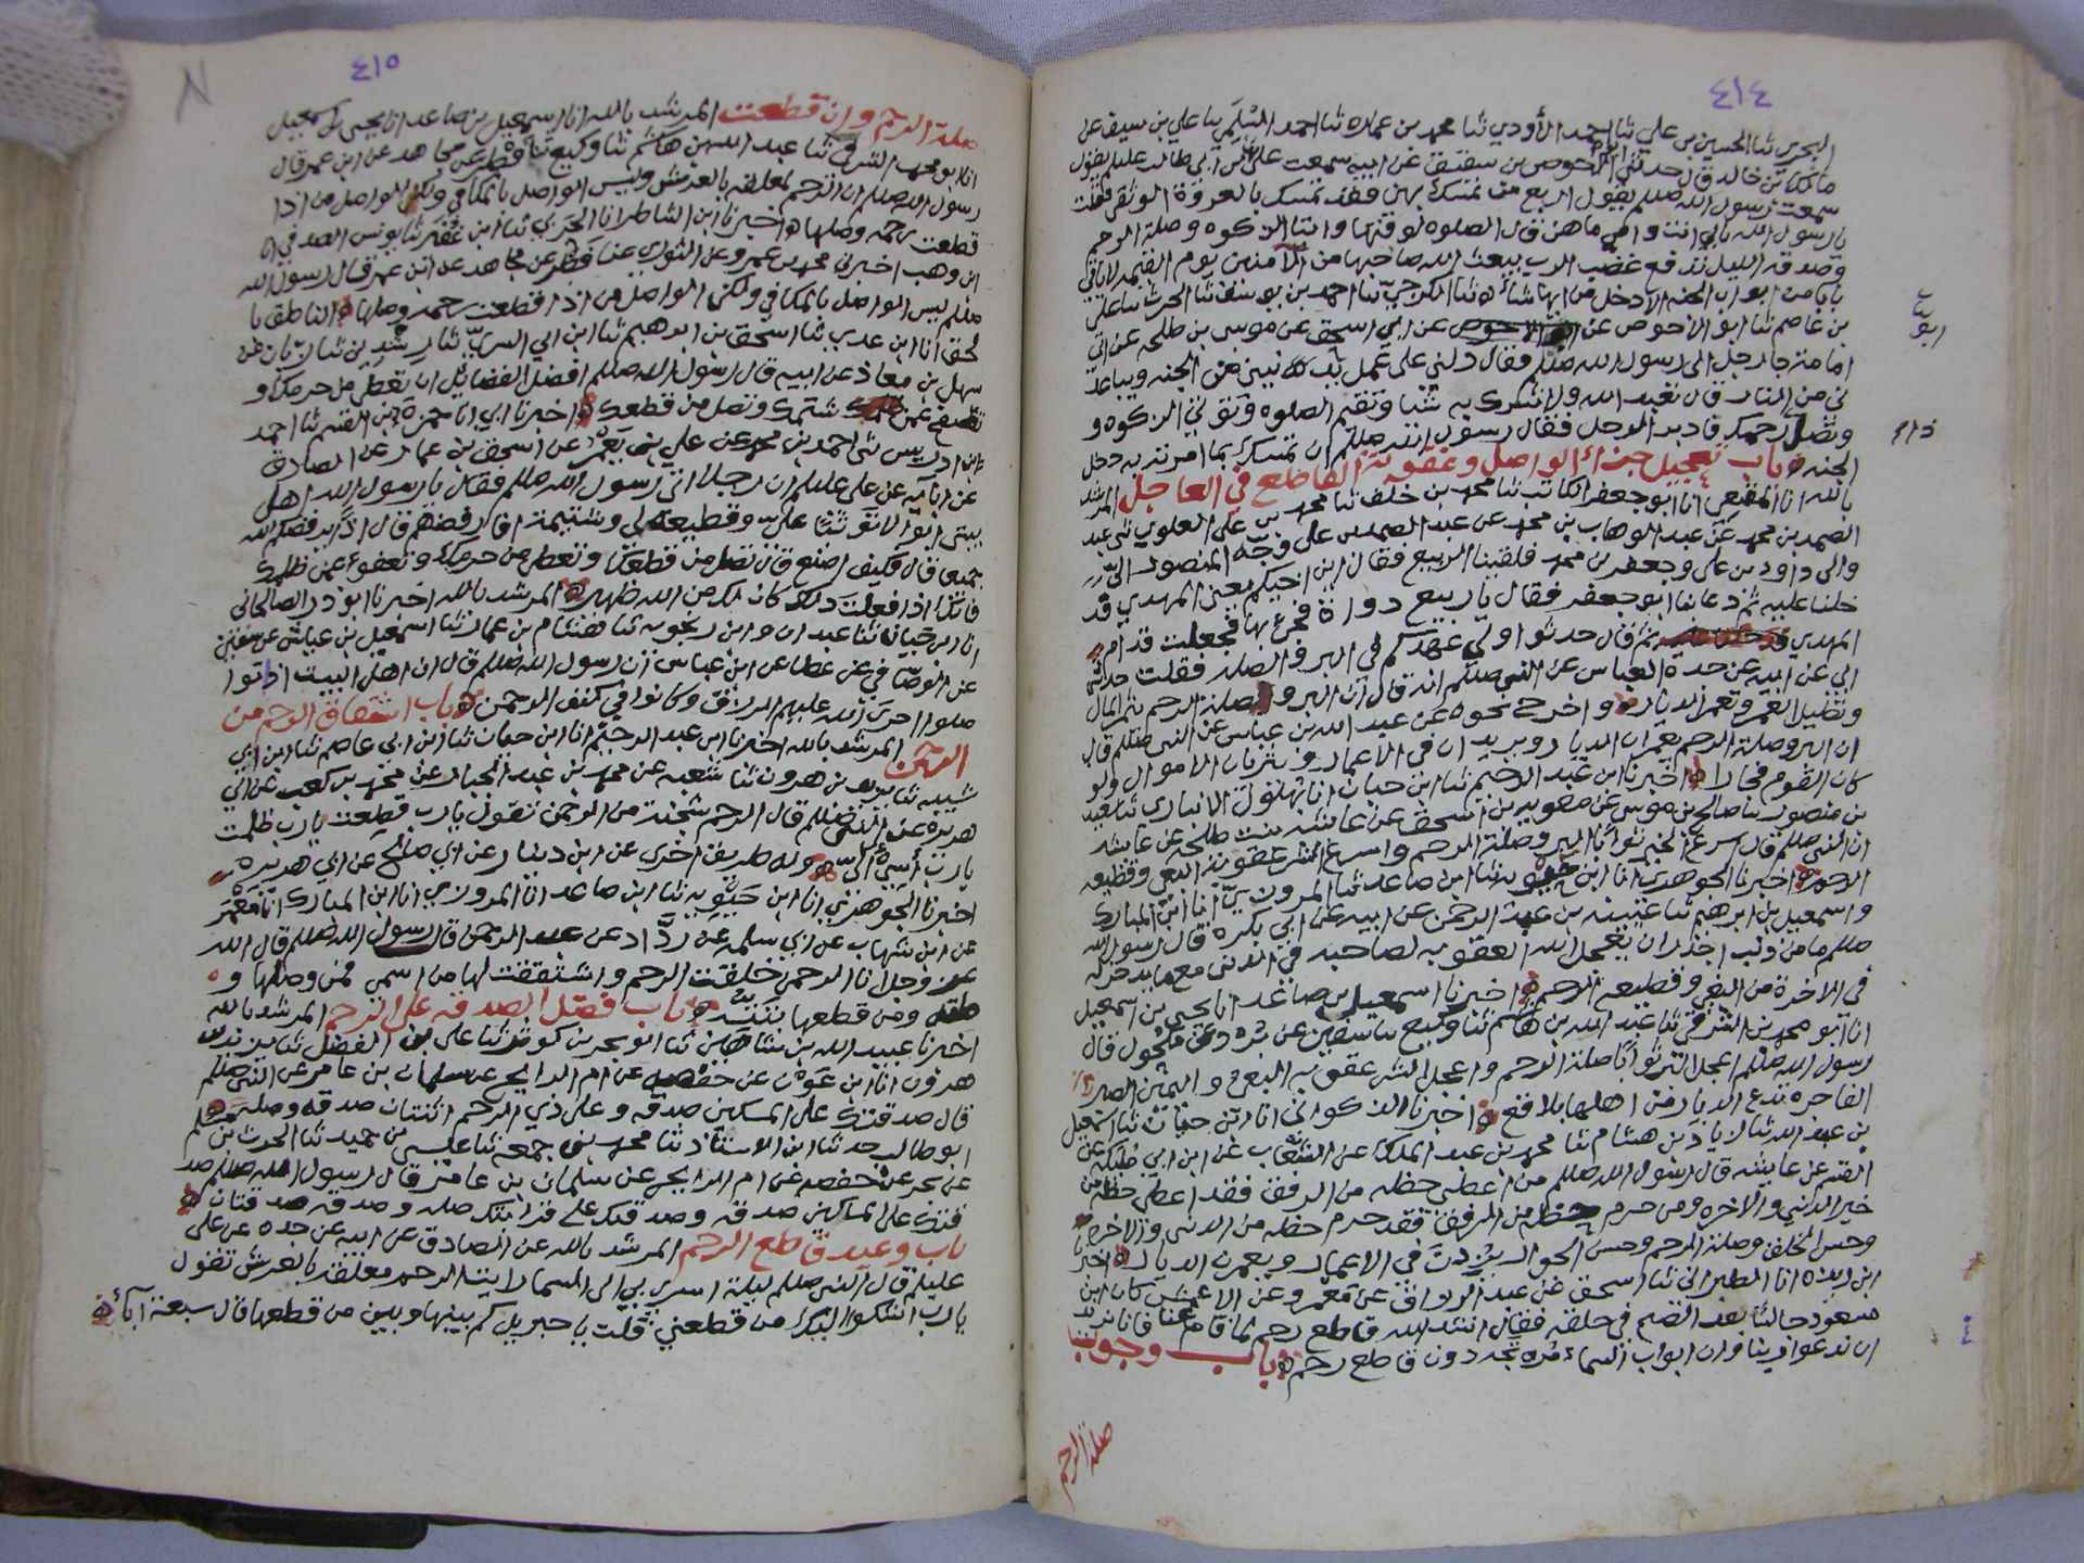 ٤١٤
علي ثنا احمد الأودي ثنا محمد بن عماره ثنا احمد علي بن سيف عن
بن خالد قال حدثني الاحوص بن عن ابيه سمعت علي بن ابي طالب عليلم يقول
سمعت رسول الله صللم يقول اربع من تمسك بهن فقد تمسك بالعروة الوثقى فقلت
يا رسول الله بابي انت وامي ما هن قال الصلوه لوقتها وايتا الزكوه وصلة الرحم
وصدقه الليل تدفع غضب الرب يبعث الله صاحبها من الآمنين يوم القيمه لا ياتي
بابا من ابواب الجنه الا دخل من ايها شاء ثنا احمد بن يوسف ثنا الحرث ثنا علي
بن عاصم ثنا ابو الاحوص عن ابي اسحق عن موسى بن طلحه عن ابي
امامة جا رجل الى رسول الله صللم فقال دلني على عمل من الجنه ويباعد
ني من النار قال تعبد الله ولا تشرك به شيا وتقيم الصلوه وتؤتي الزكوه و
وتصل رحمك فادبر الرجل فقال رسول الله صللم ان تمسك بما امرته به دخل
الجنه باب تعجيل جزاء الواصل وعقوبة القاطع في العاجل المرشد
بالله انا ابو جعفر الكاتب ثنا محمد بن خلف ثنا محمد بن علي العلوي ثنى عبد
الصمد بن محمد عن عبد الوهاب بن محمد عن عبد الصمد بن علي وجّه المنصور الىّ
والى داود بن علي وجعفر بن محمد فلقينا الربيع فقال ابن اخيكم يعني المهدي قد
خلنا عليه ثم دعانا ابو جعفر فقال يا ربيع دواة فجعلت قدام
المهدي ثم قال حدثوا ولي عهدكم في البر والصله فقلت حدثني
ابي عن ابيه عن جده العباس عن النبي صللم انه قال ان البر وصلة الرحم المال
وتطيل العمر وتعمر الديار واخرج نحوه عن عبد الله بن عباس عن النبي صللم قال
ان البر وصلة الرحم يعمران الديار ويزيدان في الاعمار ويثريان الاموال ولو
كان القوم فجارا اخبرنا ابن عبد الرحيم ثنا ابن حيان انا بهلول الانباري ثنا سعيد
بن منصور ثنا صالح بن موسى عن معويه بن اسحق عن عايشه بنت طلحه عن عايشه
ان النبي صللم قال اسرع الخير ثوابا البر وصلة الرحم واسرع الشر عقوبة البغي وقطيعه
الرحم اخبرنا الجوهري انا ابن حيويه ثنا ابن صاعد ثنا المروزي انا ابن المبارك
واسمعيل بن ابرهيم ثنا عيينه بن عبد الرحمن عن ابيه عن ابي بكره قال رسول الله
صللم ما من ذنب اجدر ان يعجل الله العقوبه لصاحبه في الدنيا مع ما يدخر له
في الاخرة من البغي وقطيعه الرحم اخبرنا اسمعيل بن صاعد انا يحيى بن اسمعيل
انا ابو محمد بن الشرقي ثنا عبد الله بن هاشم ثنا وكيع ثنا سفين عن برد عن مكحول قال
رسول الله صللم اعجل البر ثوابا صلة الرحم واعجل الشر عقوبه البغي واليمين الصبر
الفاجره تدع الديار من اهلها بلاقع اخبرنا الذكواني انا ابن حيان ثنا اسمعيل
بن عبد الله ثنا زياد بن هشام ثنا محمد بن عبد الملك عن ابن ابي مليكه عن
القسم عن عايشه قال رسول الله صللم من اعطي حظه من الرفق فقد اعطي حظه من
خير الدنيا والاخره ومن حرم حظه من الرفق فقد حرم حظه من الدنيا والاخره
وحسن الخلق وصلة الرحم وحسن الجوار يزدن في الاعمار ويعمرن الديار اخبرنا
ابن ريذه انا الطبراني ثنا اسحق عن عبد الرزاق عن معمر عن الاعمش كان ابن
مسعود جالسا بعد الصبح في حلقه فقال انشد الله قاطع رحم لما قام عنا فانا نريد
ان ندعو ربنا وان ابواب السماء مرتجه دون قاطع رحم باب وجوب
صلة الرحم
٤١٥
صلة الرحم وان قطعت المرشد بالله انا اسمعيل بن صاعد انا يحيى بن اسمعيل
انا ابو محمد الشرقي ثنا عبد الله بن هاشم ثنا وكيع ثنا فطر عن مجاهد عن ابن عمر قال
رسول الله صللم ان الرحم لمعلقه بالعرش وليس الواصل بالمكافي ولكن الواصل من اذا
قطعت رحمه وصلها اخبرنا ابن الشاطر انا الحربي ثنا ابن عفير ثنا يونس الصدفي انا
ابن وهب اخبرني محمد بن عمرو عن الثوري عن فطر عن مجاهد عن ابن عمر قال رسول الله
صللم ليس الواصل بالمكافي ولكن الواصل من اذا قطعت رحمه وصلها الناطق با
لحق انا ابن عدي ثنا اسحق بن ابرهيم ثنا ابن ابي السري ثنا رشدين ثنا زبان عن
سهل بن معاذ عن ابيه قال رسول الله صللم افضل الفضائل ان تعطي من حرمك و
تصفح عمن شتمك وتصل من قطعك اخبرنا ابي انا حمزة بن القسم ثنا احمد
بن ادريس ثنى احمد بن محمد عن علي بن يعمر عن اسحق بن عمار عن الصادق
عن ابآيه عن علي عليلم ان رجلا اتى رسول الله صللم فقال يا رسول الله اهل
بيتي ابوا الا توثبا علي وقطيعه لي وشتيمة افارفضهم قال اذًا يرفضكم الله
جميعا قال فكيف اصنع قال تصل من قطعك وتعطي من حرمك وتعفو عمن ظلمك
فانك اذا فعلت ذلك كان لك من الله ظهير المرشد بالله اخبرنا ابو ذر الصالحاني
انا ابن حيان ثنا عبدان وابن رنجويه ثنا هشام بن عمار ثنا اسمعيل بن عياش عن سفين
عن الوصّافي عن عطا عن ابن عباس ان رسول الله صللم قال ان اهل البيت اذا تو
صلوا اجرى الله عليهم الرزق وكانوا في كنف الرحمن باب اشتقاق الرحم من
الرحمن المرشد بالله اخبرنا ابن عبد الرحيم انا ابن حيان ثنا ابن ابي عاصم ثنا ابن ابي
شيبه ثنا يزيد بن هرون ثنا شعبه عن محمد بن عبد الجبار عن محمد بن كعب عن ابي
هريره عن النبي صللم قال الرحم شجنة من الرحمن تقول يا رب قطعت يا رب ظلمت
يا رب أسئ الىّ وله طريق اخرى عن ابن دينار عن ابي صالح عن ابي هريره
اخبرنا الجوهري انا ابن حيويه ثنا ابن صاعد انا المروزي انا ابن المبارك انا معمر
عن ابن شهاب عن ابي سلمه عن ردّاد عن عبد الرحمن قال رسول الله صللم قال الله
عز وجل انا الرحمن خلقت الرحم واشتققت لها من اسمي فمن وصلها و
صلته ومن قطعها بتته باب فضل الصدقه على الرحم المرشد بالله
اخبرنا عبيد الله بن شاهين ثنا ابو بحر بن كوثر ثنا علي بن الفضل ثنا يزيد بن
هرون انا ابن عون عن حفصه عن ام الرايح عن سلمان بن عامر عن النبي صللم
قال صدقتك على المسكين صدقه وعلى ذي الرحم اثنتان صدقه وصله
ابو طالب حدثنا ابن الاستاذ ثنا محمد بن جمعه ثنا عيسى بن حميد ثنا الحرث بن مسلم
عن بحر عن حفصه عن ام الرايح عن سلمان بن عامر قال رسول الله صللم صد
قتك على المساكين صدقه وصدقتك على قرابتك صله وصدقه صدقتان
باب وعيد قاطع الرحم المرشد بالله عن الصادق عن ابيه عن جده عن علي
عليلم قال النبي صللم ليلة اسري بي الى السما رايت الرحم معلقه بالعرش تقول
يا رب اشكوا اليك من قطعني قلت يا جبريل كم بينها وبين من قطعها قال سبعة آباء